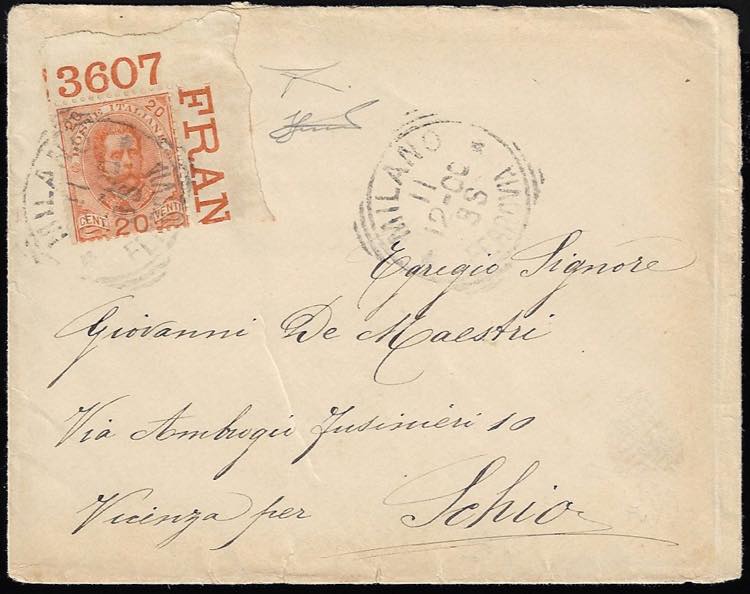 3607
FRAN
POSTE ITALIANE
20 20
CENT VENTI
20
MILANO
FERROVIA
MILANO
11
12-
98
FERROVIA
Egregio Signore
Giovanni De Maestri
Via Ambrogio Fusinieri 10
Vicenza per Schio